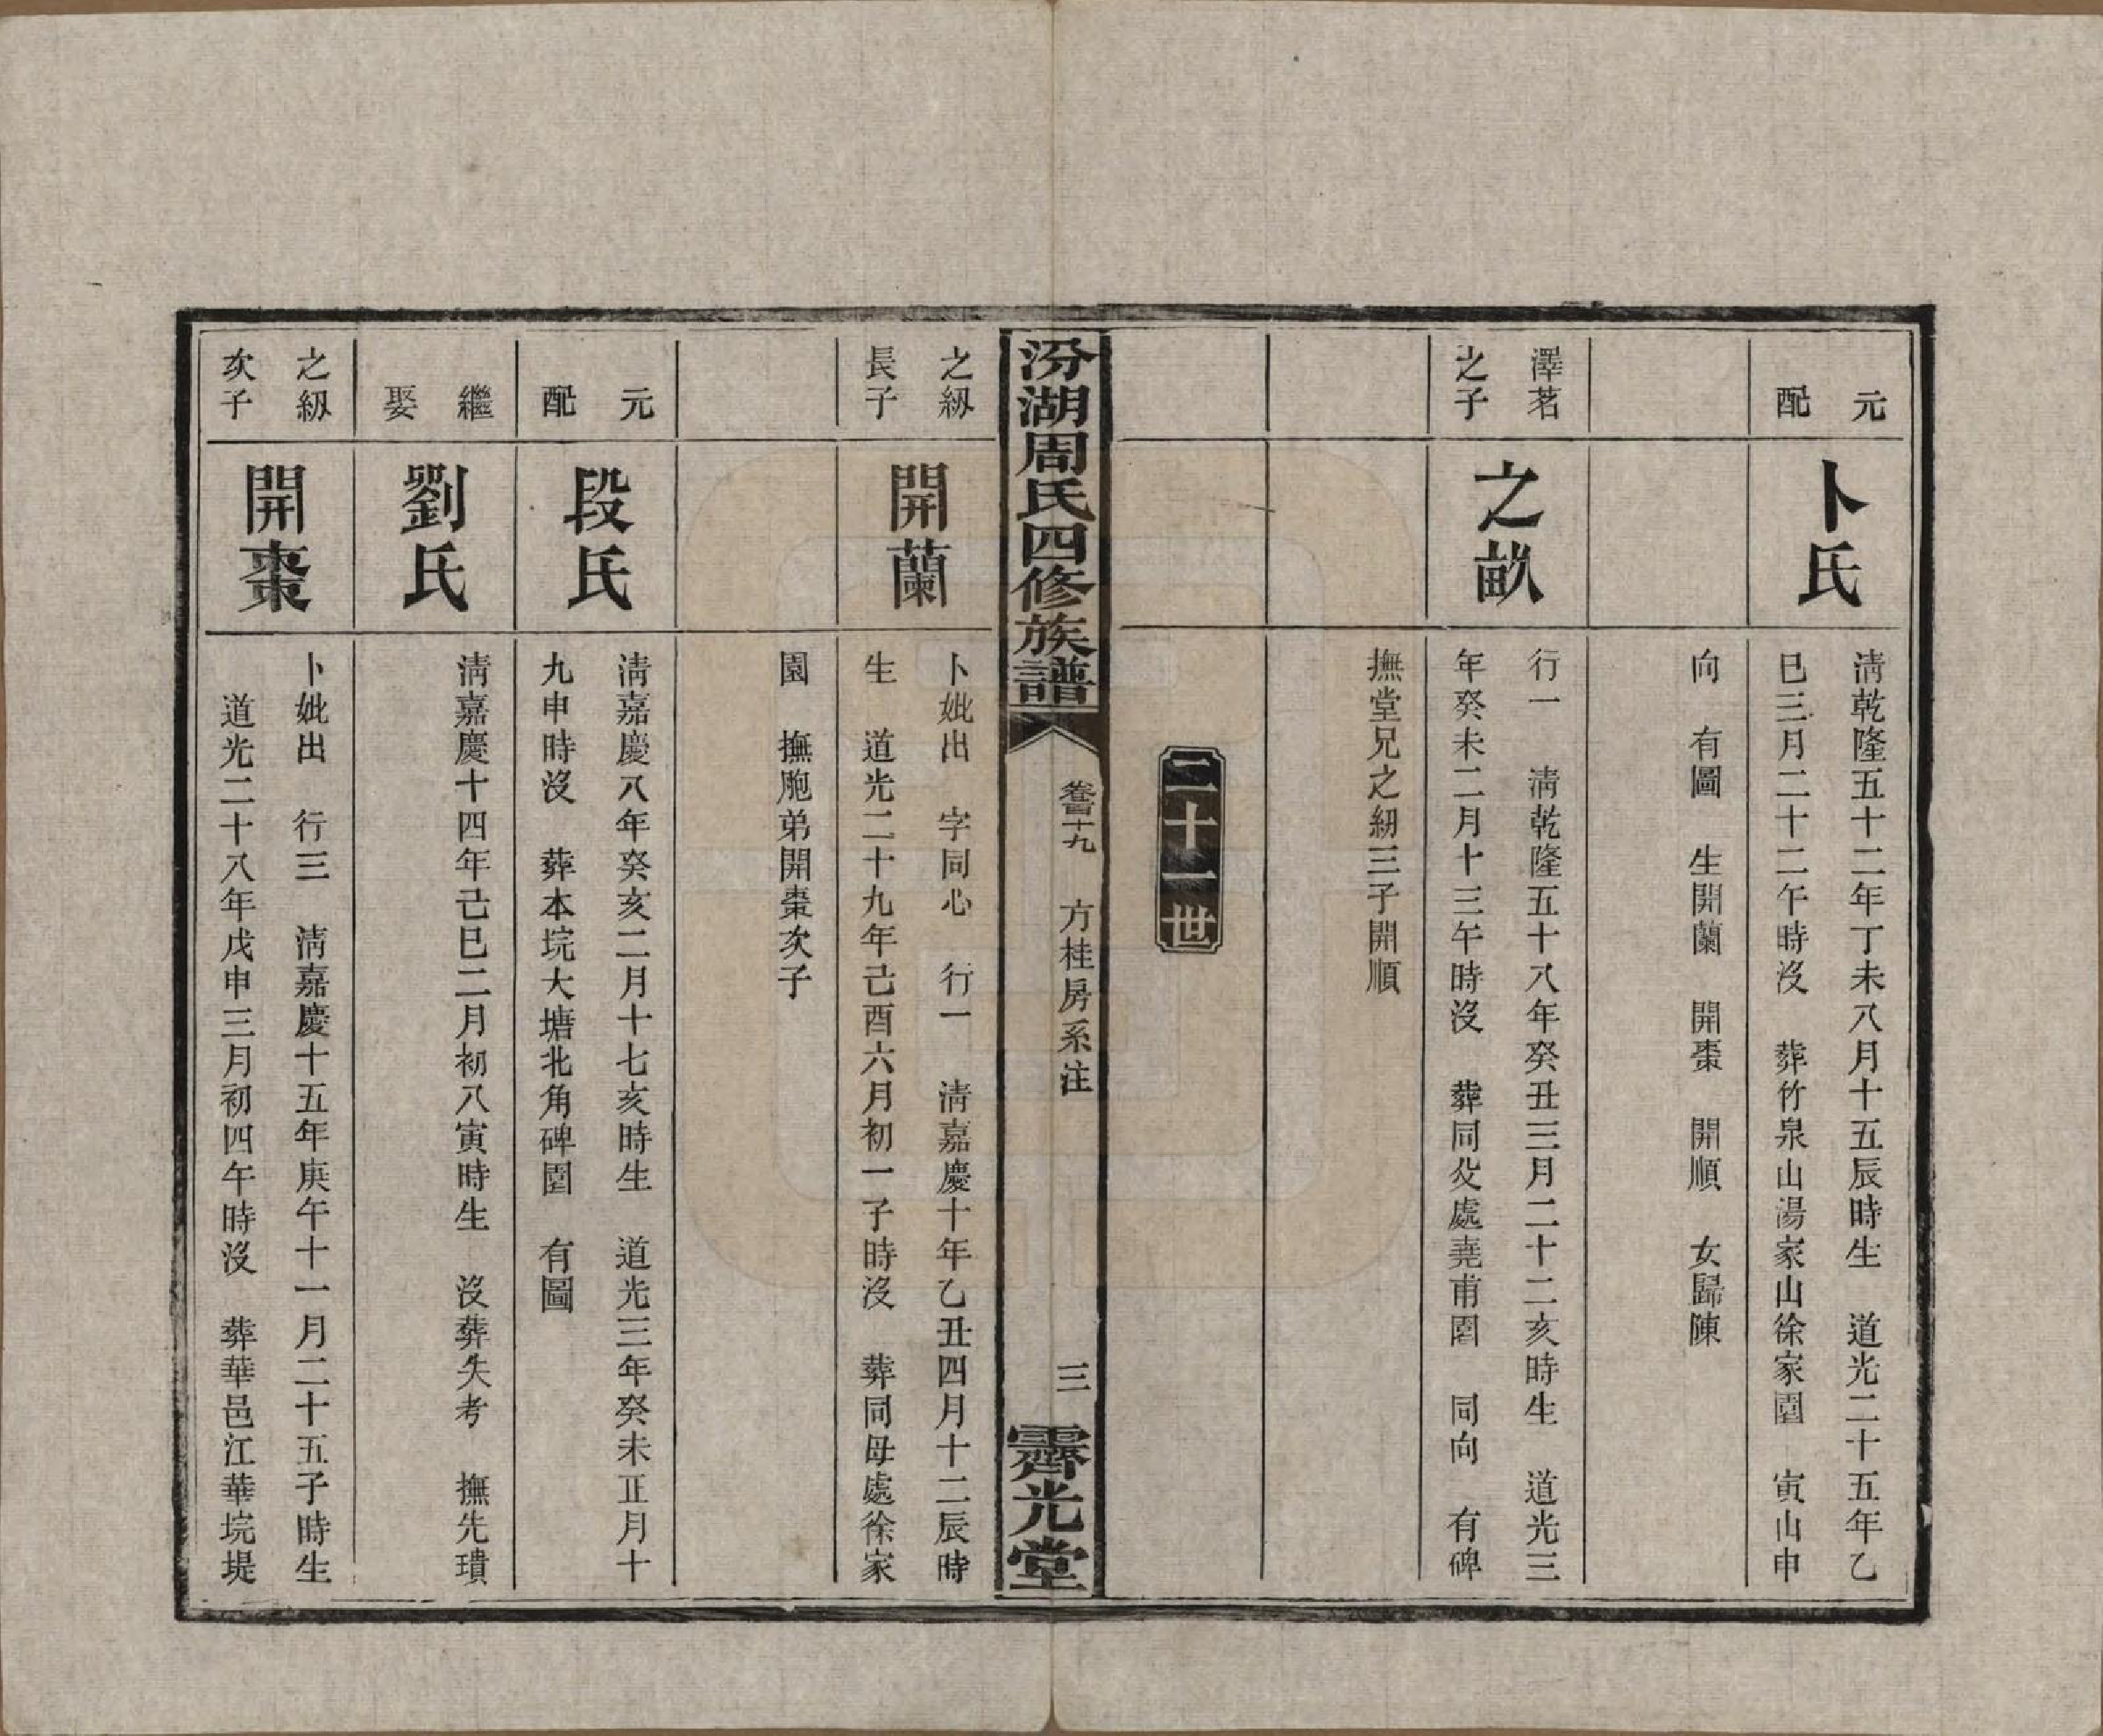 元
配
卜氏
淸乾隆五十二年丁未八月十五辰時生　道光二十五年乙
巳三月二十二午時沒　葬竹泉山湯家山徐家園　寅山申
向　有圖　生開蘭　開棗　開順　女歸陳
澤茗
之子
之畝
行一　淸乾隆五十八年癸丑三月二十二亥時生　道光三
年癸未二月十三午時沒　葬同父處堯甫園　同向　有碑
撫堂兄之紉三子開順
二十一世
汾湖周氏四修族譜
卷䪨十九　方桂房系注
三
霽光堂
之紉
長子
開蘭
卜妣出　字同心　行一　淸嘉慶十年乙丑四月十二辰時
生　道光二十九年己酉六月初一子時沒　葬同母處徐家
園　撫胞弟開棗次子
元
配
段氏
淸嘉慶八年癸亥二月十七亥時生　道光三年癸未正月十
九申時沒　葬本垸大塘北角碑園　有圖
繼
娶
劉氏
淸嘉慶十四年己巳二月初八寅時生　沒葬失考　撫先璝
之紉
次子
開棗
卜妣出　行三　淸嘉慶十五年庚午十一月二十五子時生
道光二十八年戊申三月初四午時沒　葬華邑江華垸堤